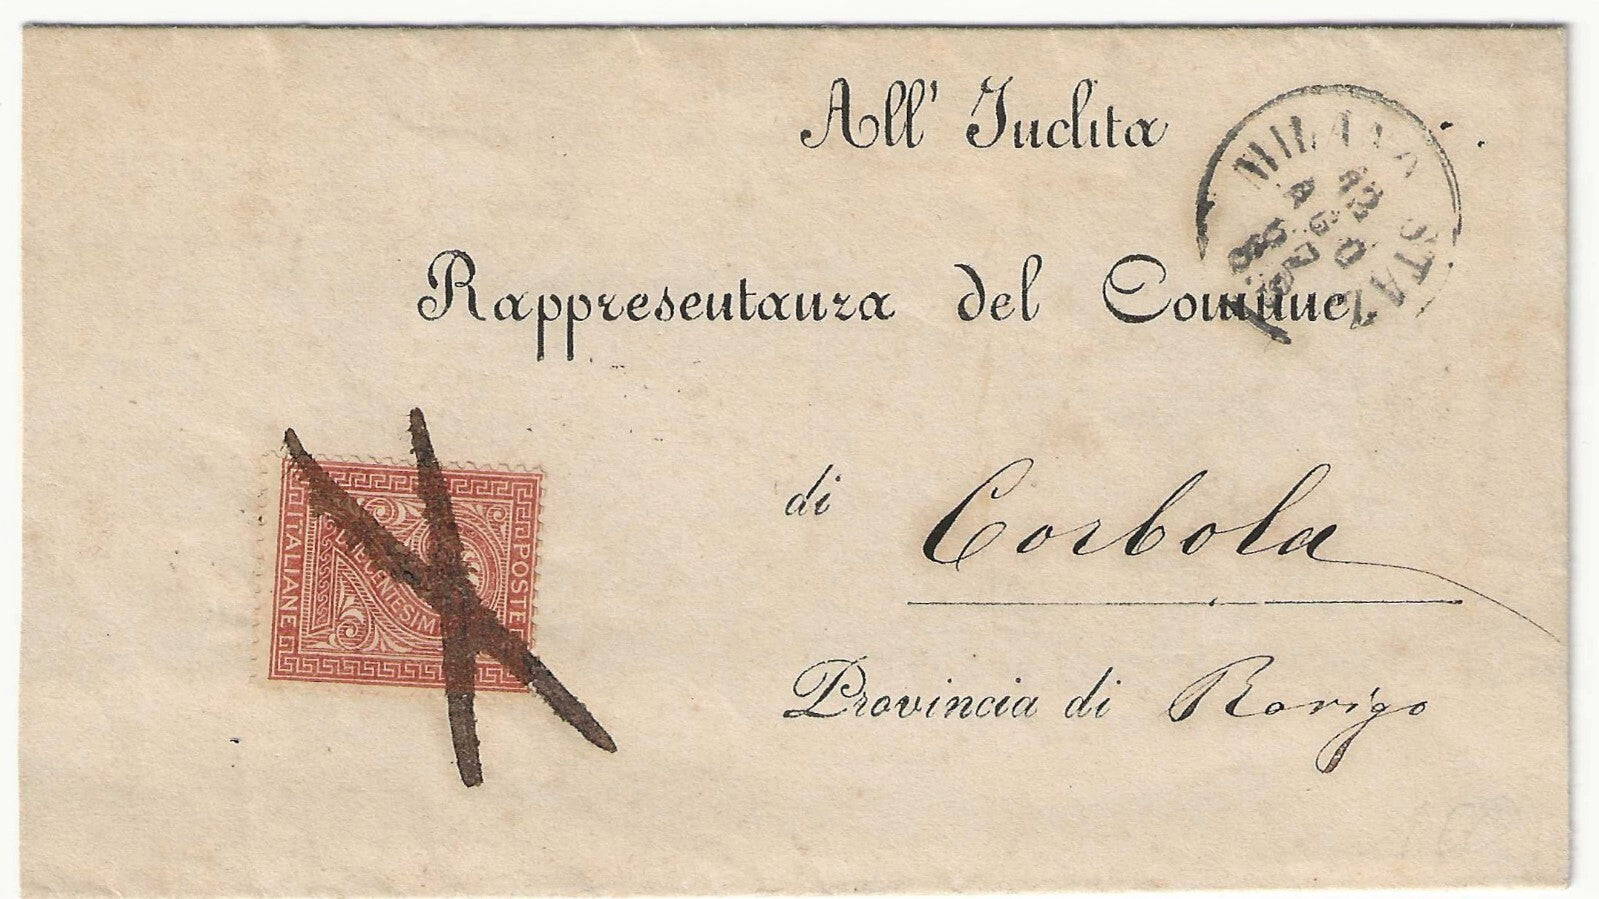 All' Inclita
Rappresentanza del Comune
di Corbola
Provincia di Rovigo
MILANO STAZ
12
AGO
POSTE
ITALIANE
DUE CENTESIMI